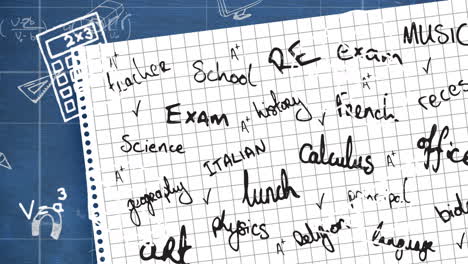 MUSIC
2x3
A+
A+
teacher School RE Exam
A+
rece
Exam history french
A+
A+
Science ITALIAN Calculus office
A+
A+
geography lunch principal
V=a³
physics religion biolo
A+
A+
art language